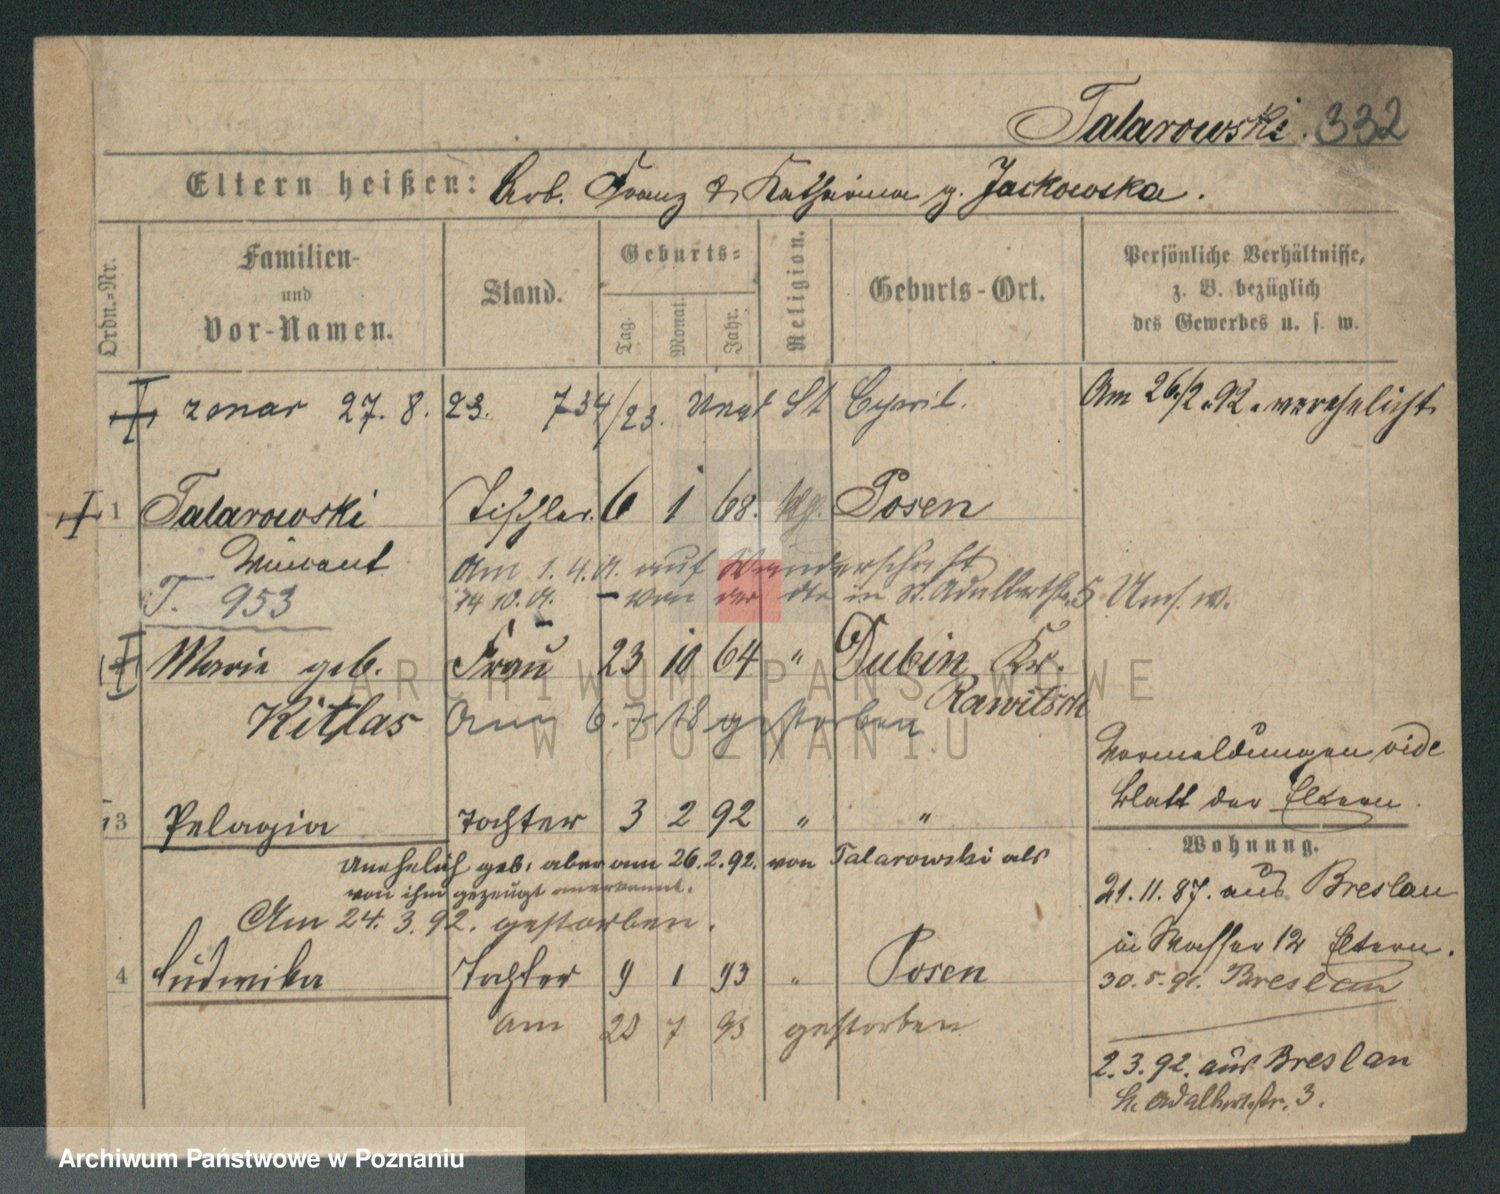 Talarowski. 332
Eltern heißen: Arb. Franz & Katharina g. Jackowska.
Ordn.-Nr.
Familien- und Vor-Namen.
Stand.
Geburts-
Tag. Monat. Jahr.
Religion.
Geburts-Ort.
Persönliche Verhältnisse, z. B. bezüglich des Gewerbes u. s. w.
27. 8. 23. 734/23. St
Am 26/2. 92. verehelicht
1 Talarowski Tischler. 6 1 68. Posen
T. 953
Am 1. 4. auf Wanderschaft
von der in St. Adalbertstr. 5
Marie geb. Frau 23 10 64 " Dubin Kr.
Kitlas Rawitsch
Am 6. 7 18 gestorben
Vormeldungen vide
Blatt der Eltern.
3 Pelagia Tochter 3 2 92 " "
Wohnung.
Unehelich geb. aber am 26. 2. 92. von Talarowski als
von ihm gezeugt anerkannt.
21. 11. 87. aus Breslau
Am 24. 3. 92. gestorben.
in Wasser 12 Eltern.
4 Ludwika Tochter 9 1 93 " Posen
30. 5. 91. Breslau
am 20 7 93 gestorben
2. 3. 92. aus Breslau
St. Adalbertstr. 3.
ARCHIWUM PAŃSTWOWE
W POZNANIU
Archiwum Państwowe w Poznaniu